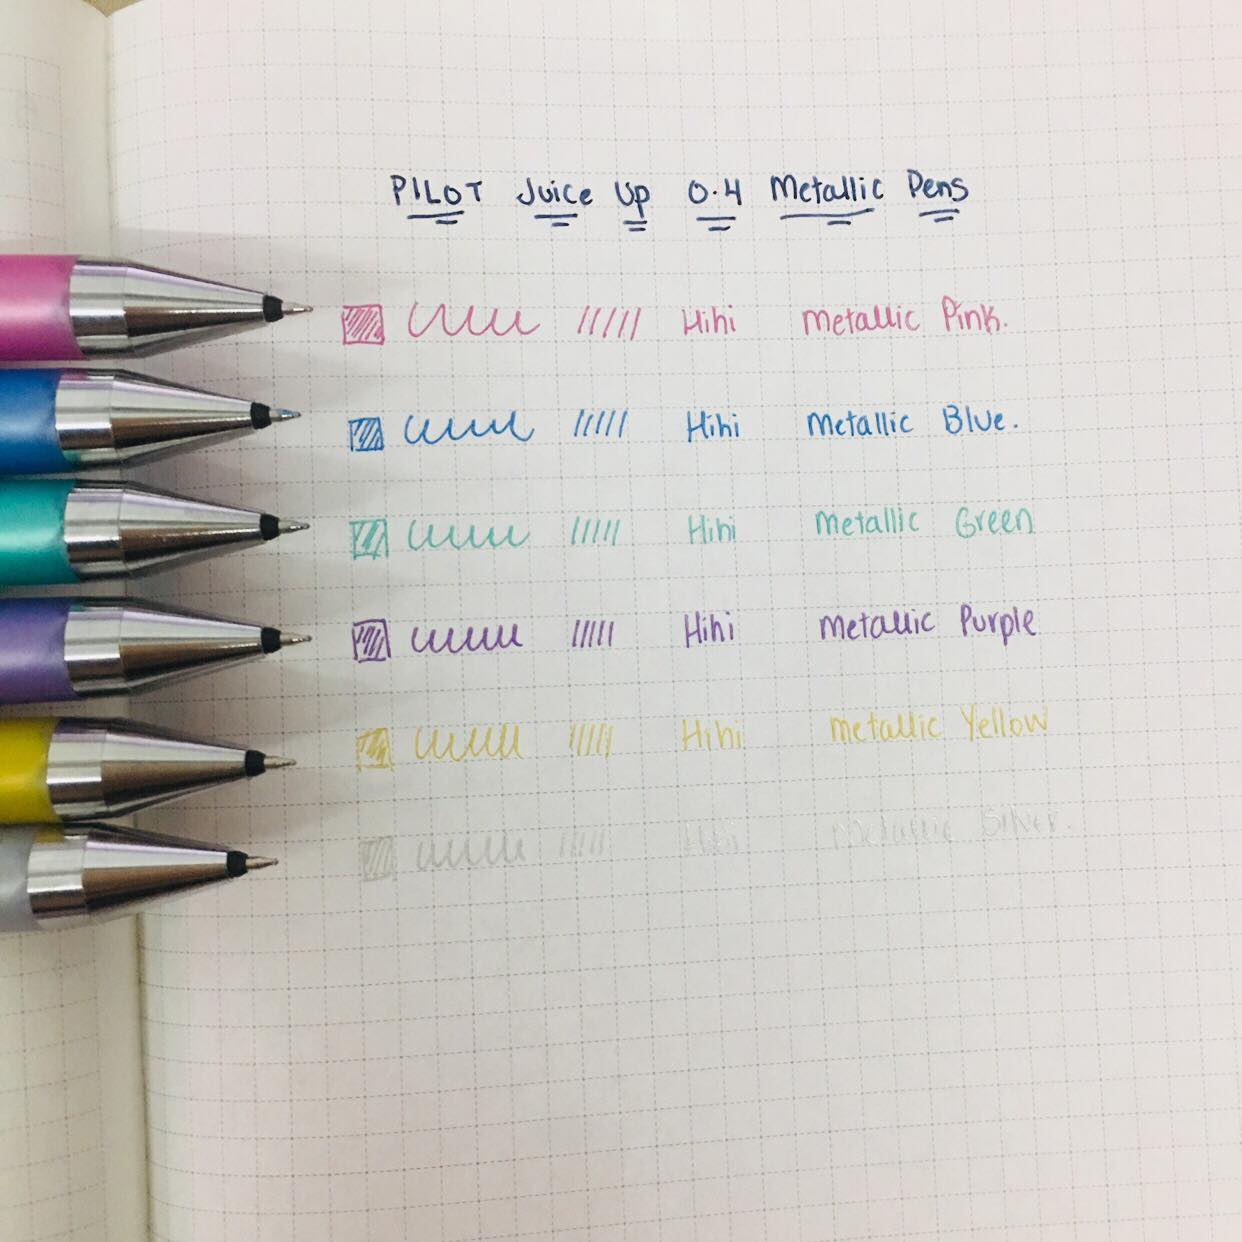 PILOT Juice Up 0.4 Metallic Pens
Hihi Metallic Pink.
Hihi Metallic Blue.
Hihi Metallic Green
Hihi Metallic Purple
Hihi Metallic Yellow
Hihi Metallic Silver.